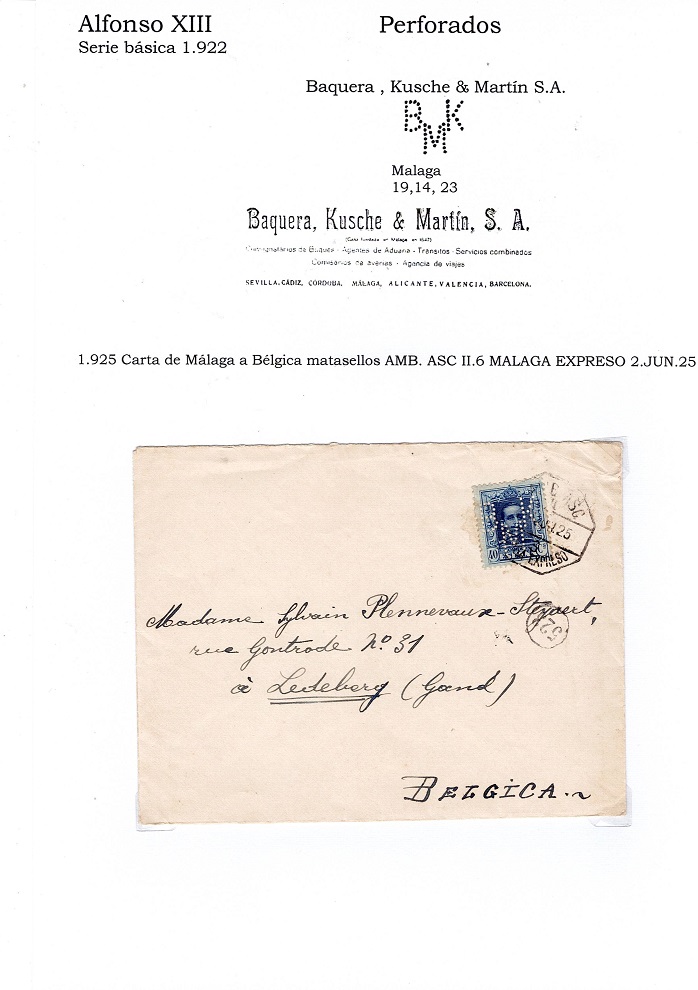 Alfonso XIII
Perforados
Serie básica 1.922
Baquera , Kusche & Martín S.A.
B K
M
Malaga
19,14, 23
Baquera, Kusche & Martín, S. A.
(Casa fundada en Málaga en 1847)
Consignatarios de Buques - Agentes de Aduana - Transitos - Servicios combinados
Comisarios de averias - Agencia de viajes
SEVILLA, CÁDIZ, CÓRDOBA, MÁLAGA, ALICANTE, VALENCIA, BARCELONA.
1.925 Carta de Málaga a Bélgica matasellos AMB. ASC II.6 MALAGA EXPRESO 2.JUN.25
ASC
25
EXPRESO
40
Madame Sylvain Plennevaux-Steyaert,
rue Gontrode Nº 31
à Ledeberg (Gand)
BELGICA.~